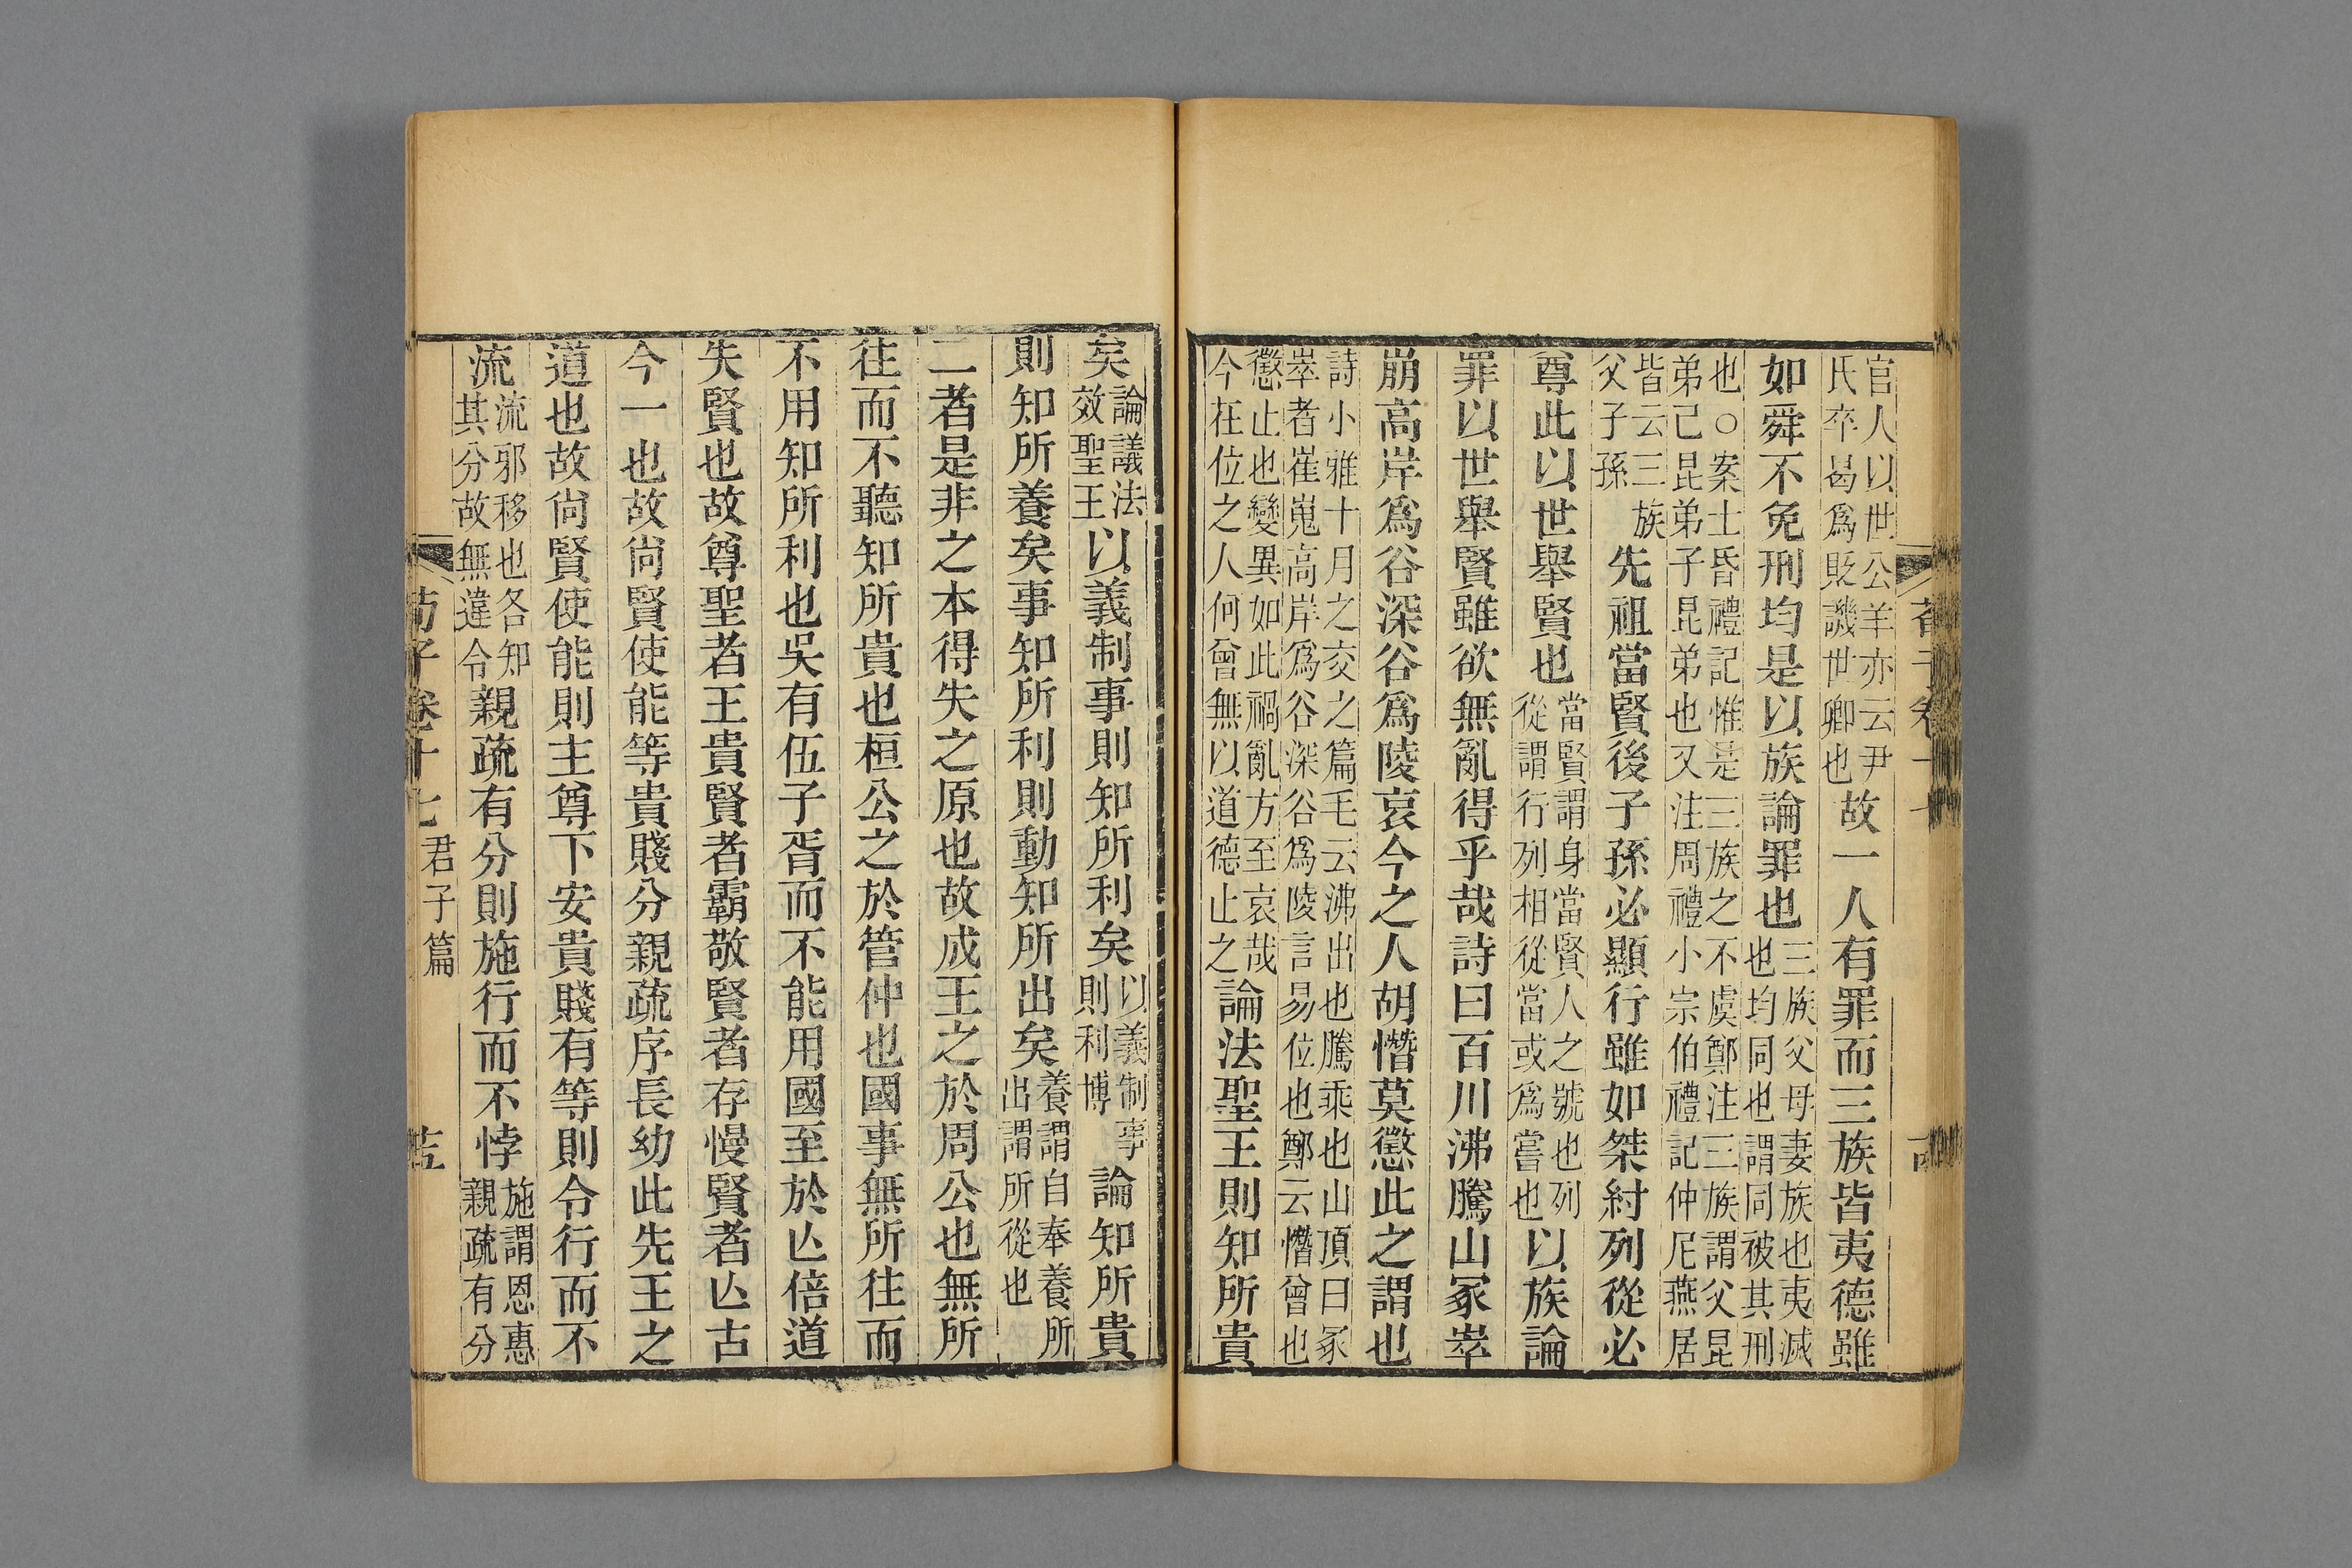 官人以世公羊亦云尹氏卒曷爲貶譏世卿也故一人有罪而三族皆夷德雖
如舜不免刑均是以族論罪也三族父母妻族也夷滅也均同也謂同被其刑
也○案士昏禮記惟是三族之不虞鄭注三族謂父昆弟己昆弟子昆弟也又注周禮小宗伯禮記仲尼燕居
皆云三族父子孫先祖當賢後子孫必顯行雖如桀紂列從必
尊此以世舉賢也當賢謂身當賢人之號也列從謂行列相從當或爲嘗也以族論
罪以世舉賢雖欲無亂得乎哉詩曰百川沸騰山冢崒
崩高岸爲谷深谷爲陵哀今之人胡憯莫懲此之謂也
詩小雅十月之交之篇毛云沸出也騰乘也山頂曰冢崒者崔嵬高岸爲谷深谷爲陵言易位也鄭云憯曾也
懲止也變異如此禍亂方至哀哉今在位之人何曾無以道德止之論法聖王則知所貴
矣論議法效聖王以義制事則知所利矣以義制事則利博論知所貴
則知所養矣事知所利則動知所出矣養謂自奉養所出謂所從也
二者是非之本得失之原也故成王之於周公也無所
往而不聽知所貴也桓公之於管仲也國事無所往而
不用知所利也吳有伍子胥而不能用國至於亾倍道
失賢也故尊聖者王貴賢者霸敬賢者存慢賢者亾古
今一也故尙賢使能等貴賤分親疏序長幼此先王之
道也故尙賢使能則主尊下安貴賤有等則令行而不
流流邪移也各知其分故無違令親疏有分則施行而不悖施謂恩惠親疏有分
荀子卷十七君子篇